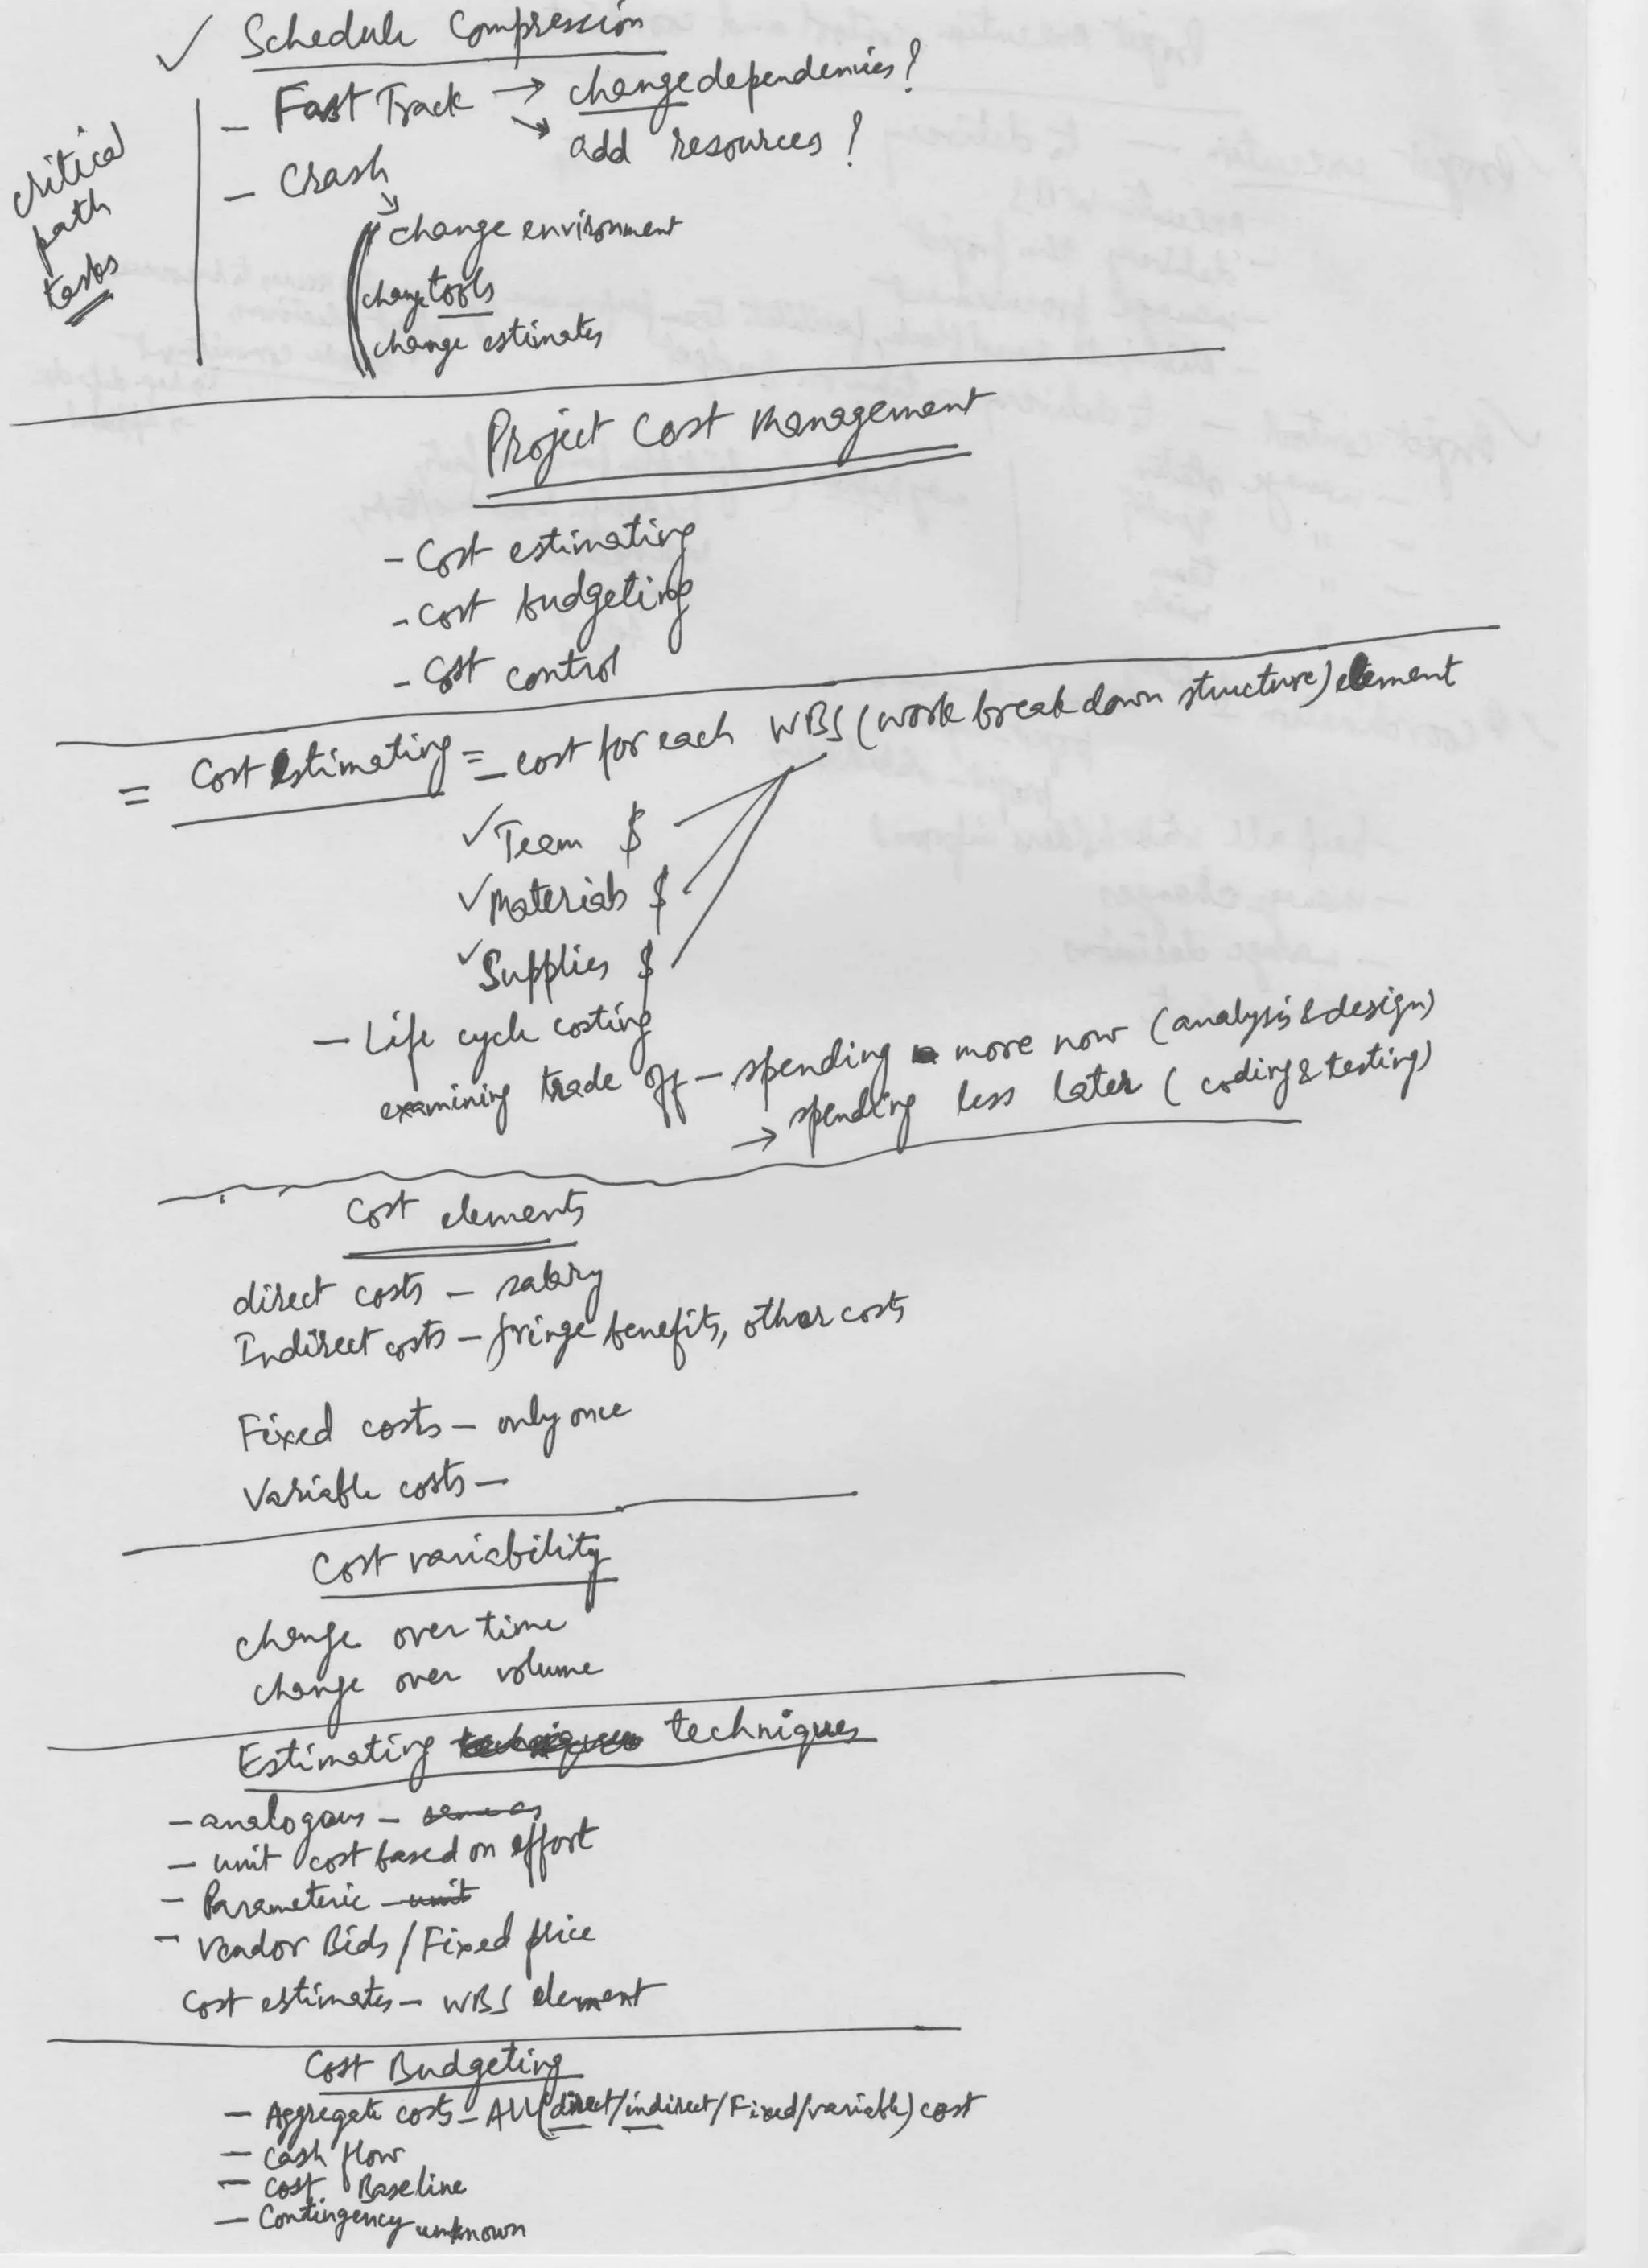 ✓ Schedule Compression
- Fast Track → change dependencies?
↘ add resources?
- Crash
critical
path
tasks
↘ change environment
change tools
change estimates
Project Cost Management
- Cost estimating
- Cost budgeting
- Cost control
= Cost Estimating = - cost for each WBS (work break down structure) element
✓ Team $
✓ Materials $
✓ Supplies $
- Life cycle costing
examining trade off - spending more now (analysis & design)
→ spending less later (coding & testing)
Cost elements
direct costs - salary
Indirect costs - fringe benefits, other costs
Fixed costs - only once
Variable costs -
Cost variability
change over time
change over volume
Estimating techniques
- analogous - same as
- unit cost based on effort
- Parameteric - unit
- Vendor Bids / Fixed price
Cost estimates - WBS element
Cost Budgeting
- Aggregate costs - All (direct/indirect/Fixed/variable) cost
- Cash flow
- Cost Baseline
- Contingency unknown